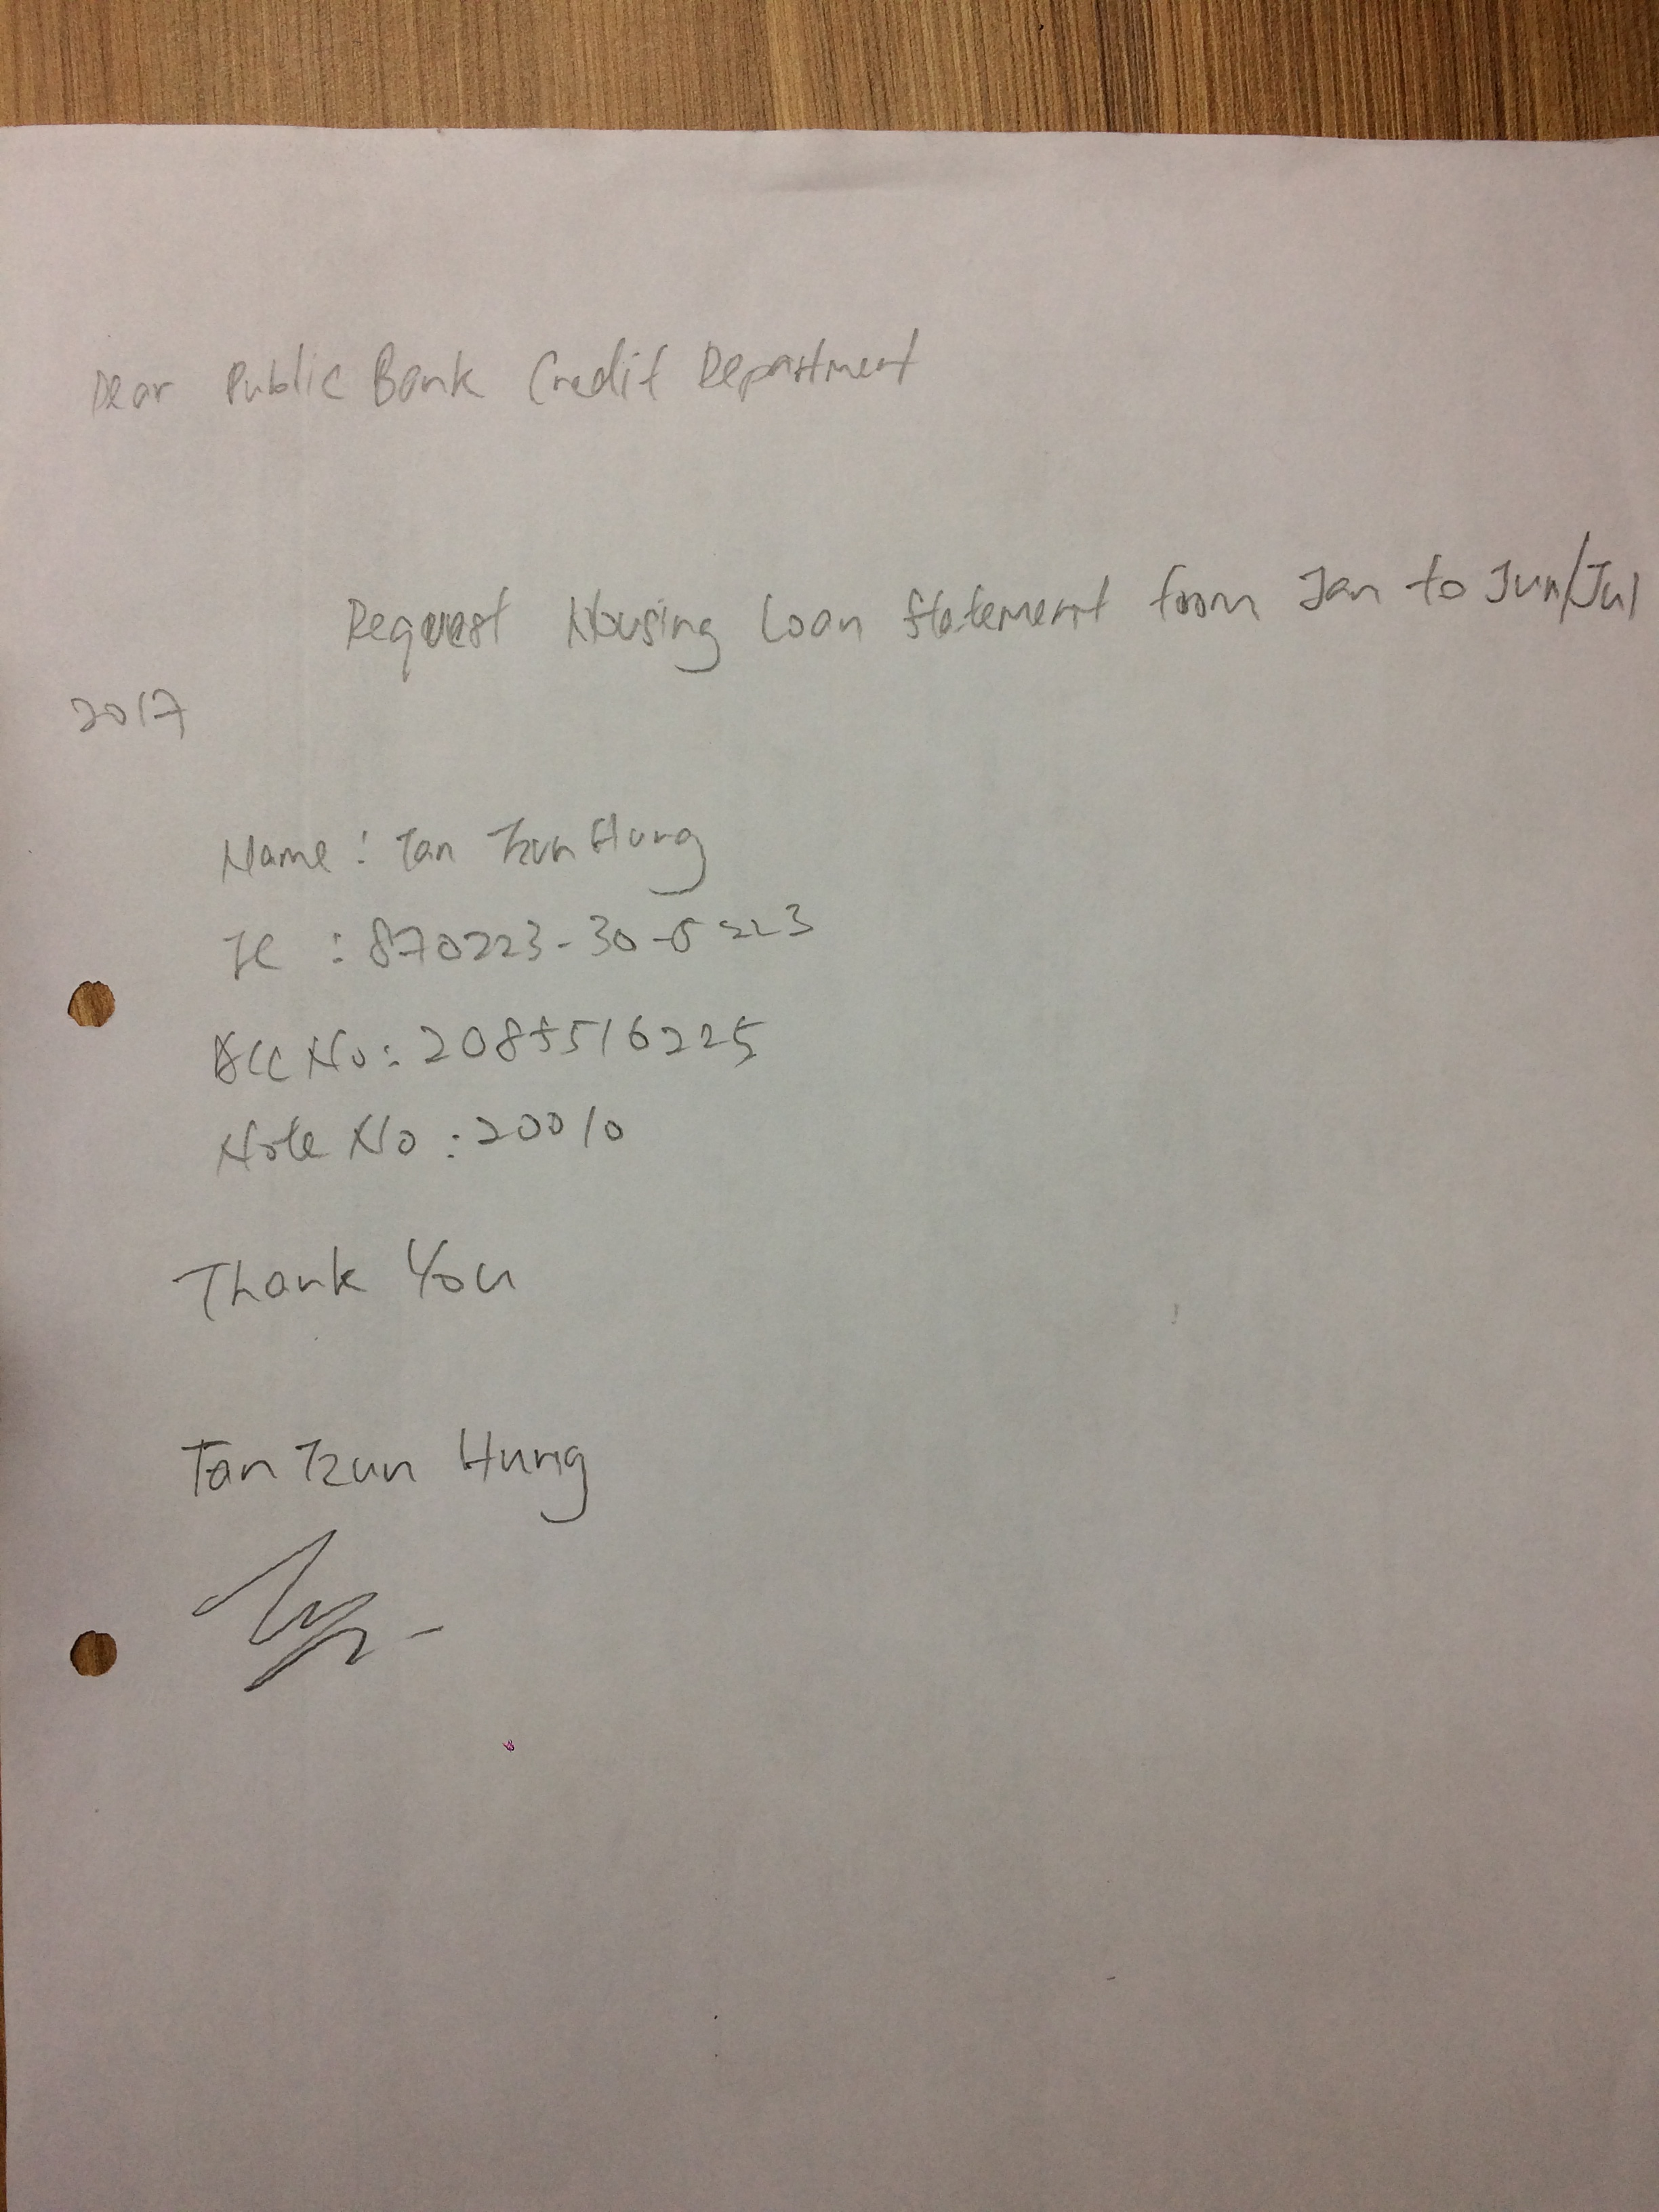 Dear Public Bank Credit Department
Request Housing Loan Statement from Jan to Jun/Jul
2017
Name : Tan Tzun Hung
IC : 870223-30-5223
Acc No: 2085516225
Note No : 20010
Thank You
Tan Tzun Hung